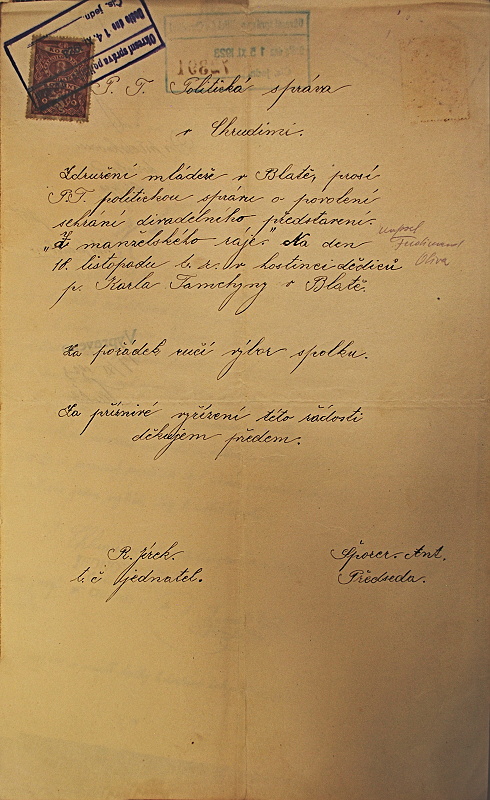 Okresní správa pol
Došlo dne 1 4. XI
Čís. jedn.
P. T. Politická správa
v Chrudimi.
Združení mládeže v Blatě, prosí
P.T. politickou správu o povolení
sehrání divadelního představení.
„Z manželského ráje." Na den
napsal
Ferdinand
Oliva
18. listopadu t. r. v hostinci dědiců
p. Karla Tamchyny v Blatě.
Za pořádek ručí výbor spolku.
Za příznivé vyřízení této žádosti
děkujem předem.
R. Jirek.
t. č jednatel.
Šporer. Ant.
Předseda.